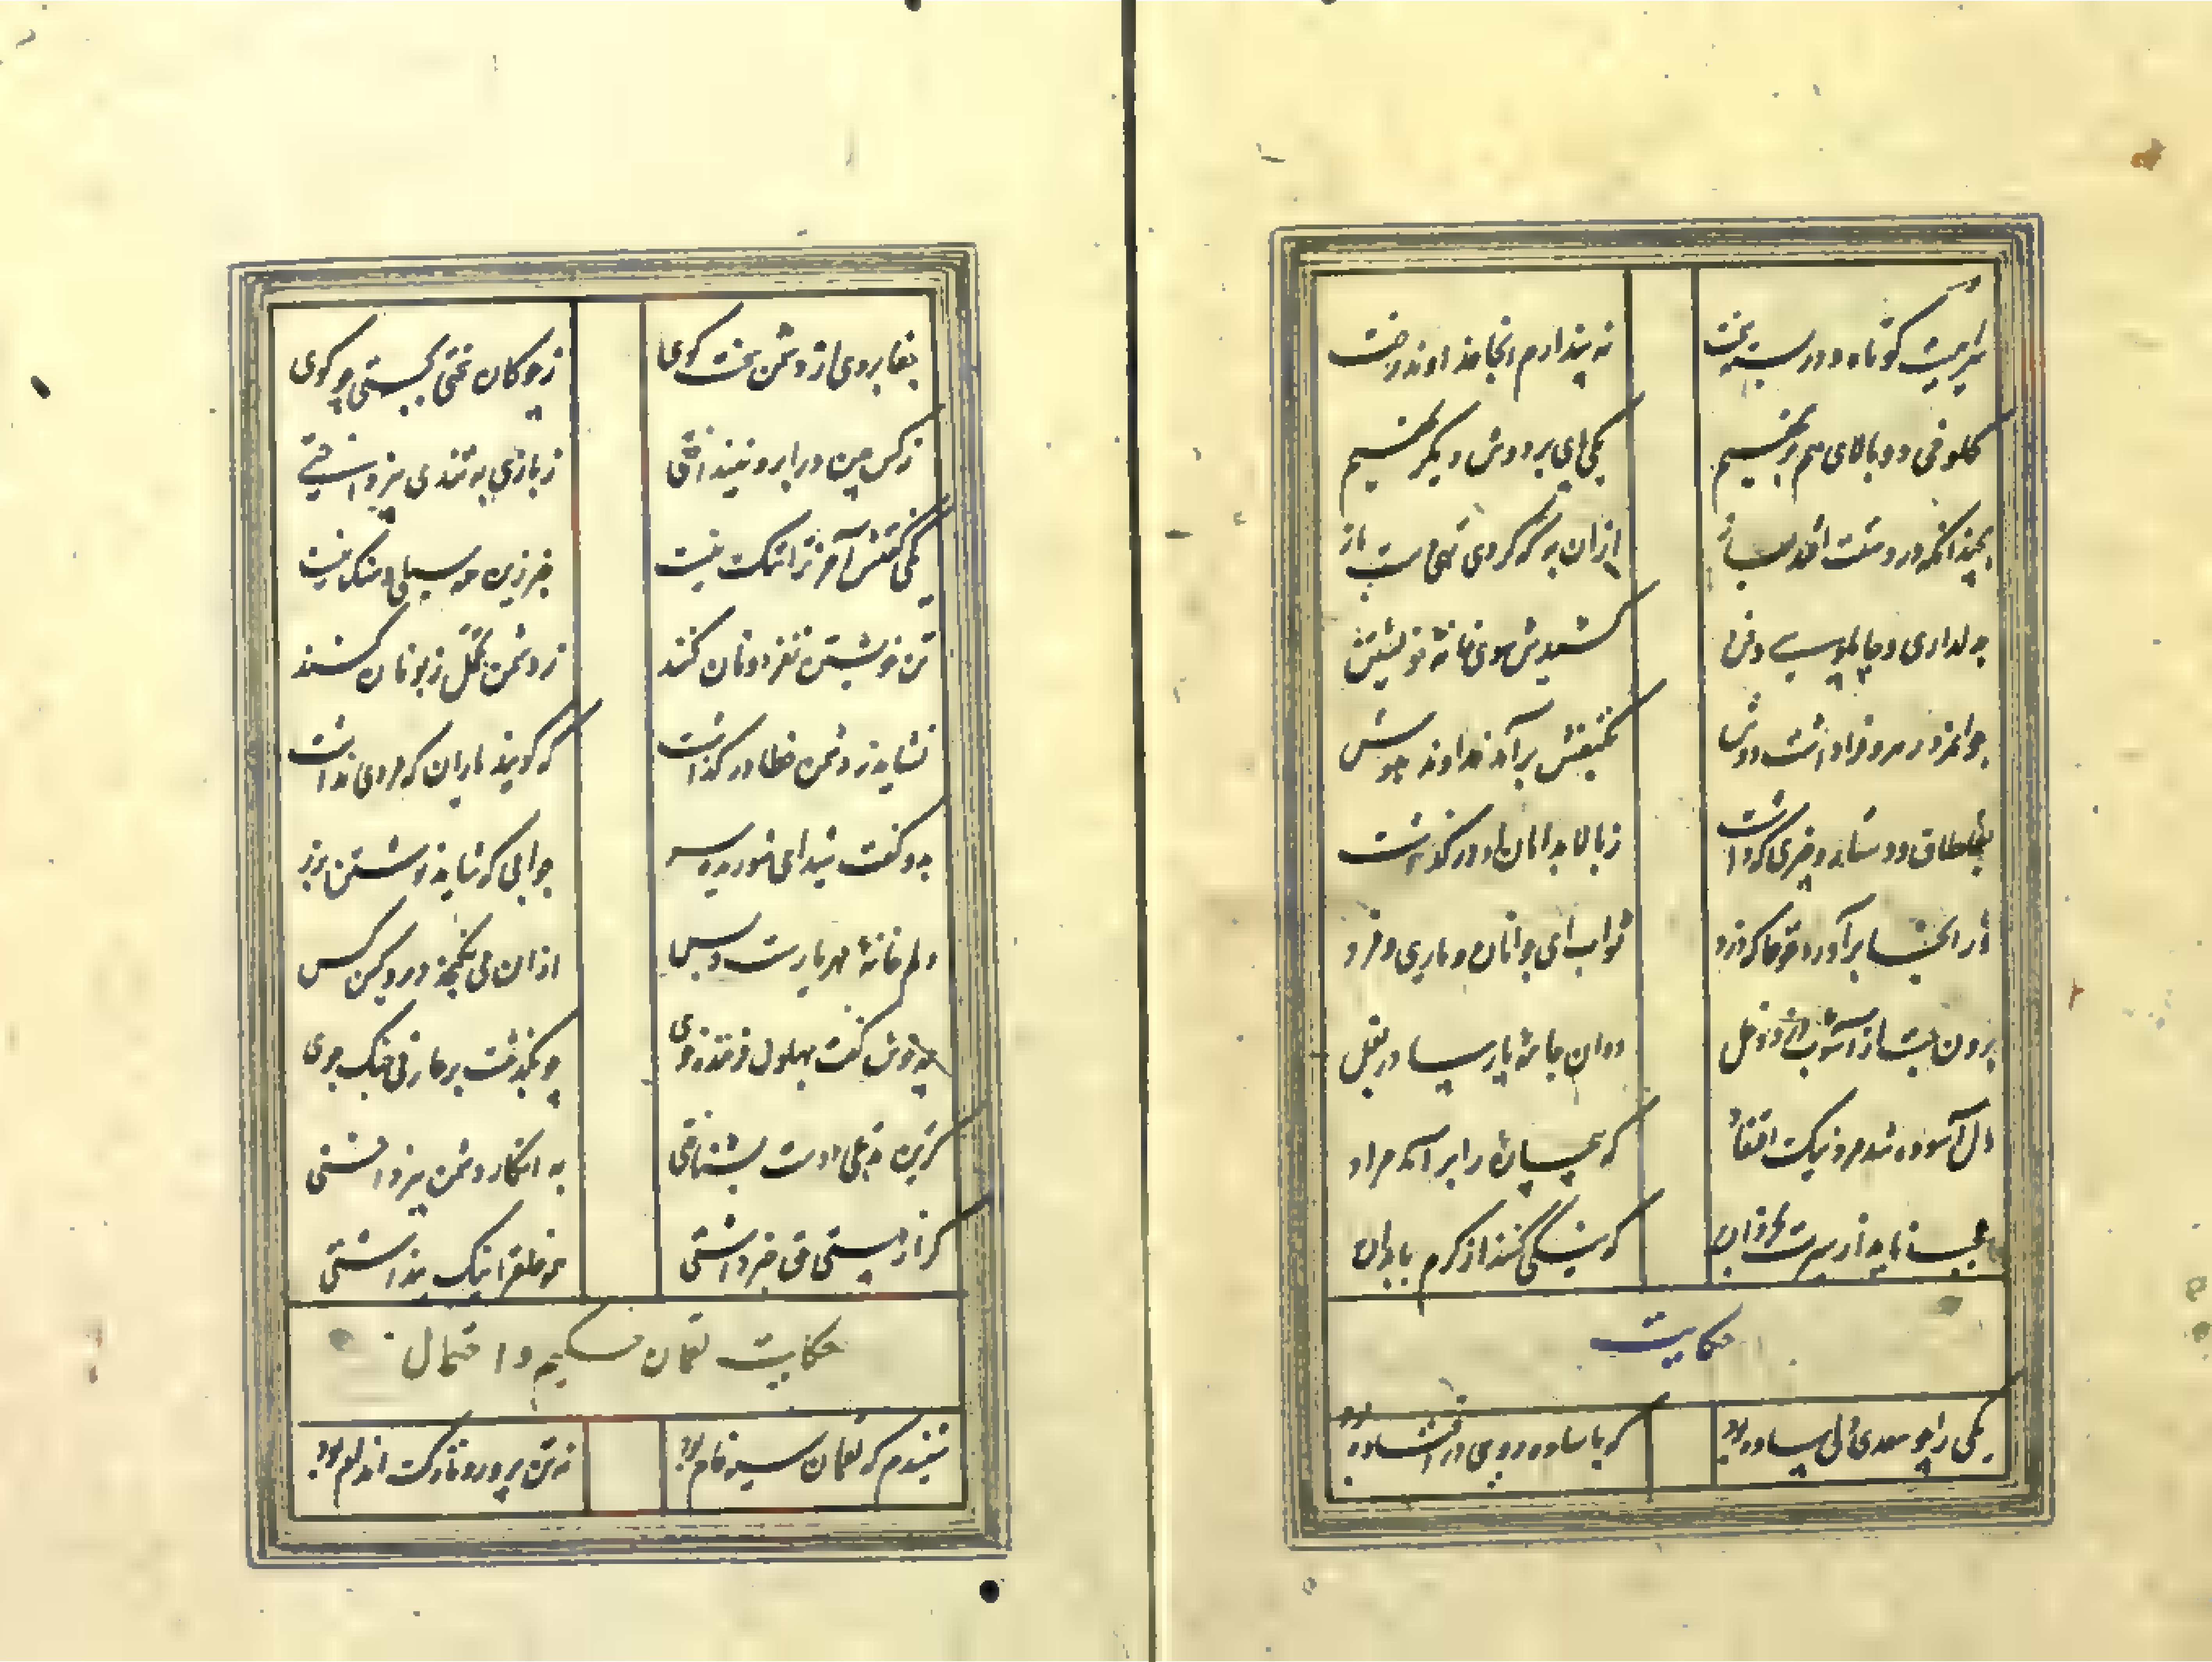 سراییست کوتاه و در بسته سخت
نه پندارم آنجا خداوند رخت
کلوخی دو بالای هم برنهیم
یکی پای بر دوش دیگر نهیم
بچندانکه در دستت افتد بساز
ازان به که گردی تهی دست باز
بدلداری و چاپلوسی و فن
کشیدش سوی خانه خویشتن
جوانمرد شبرو فرو داشت دوش
بکتفش برآمد خداوند هوش
بغلطاق و دستار و رختی که داشت
ز بالا بدامان او در گذاشت
وز آنجا برآورد غوغا که دزد
ثواب ای جوانان و یاری و مزد
برون جست از آشوب دزد دغل
دوان جامه پارسا در بغل
دل آسوده شد مرد نیک اعتقاد
که سرگشته را برآمد مراد
عجب ناید از سیرت بخردان
که نیکی کنند از کرم با بدان
حکایت
یکی را چو سعدی دلی ساده بود
که با ساده رویی در افتاده بود
جفا بردی از دشمن سخت گوی
ز چوگان سختی بجستی چو گوی
ز کس چین در ابرو نینداختی
ز بازی به تندی نپرداختی
یکی گفتش آخر ترا ننگ نیست
خبر زین همه سیلی و سنگ نیست
تن خویشتن سغبه دونان کنند
ز دشمن تحمل زبونان کنند
نشاید ز دشمن خطا در گذاشت
که گویند یاران که مردی نداشت
بدو گفت شیدای شوریده سر
جوابی که شاید نوشتن بزر
دلم خانه مهر یارست و بس
ازان می نگنجد درو کین کس
چه خوش گفت بهلول فرخنده خوی
چو بگذشت بر عارفی جنگ جوی
گر این مدعی دوست بشناختی
به پیکار دشمن نپرداختی
گر از هستی حق خبر داشتی
همه خلق را نیک پنداشتی
حکایت لقمان حکیم و احتمال
شنیدم که لقمان سیه فام بود
نه تن پرور و نازک اندام بود